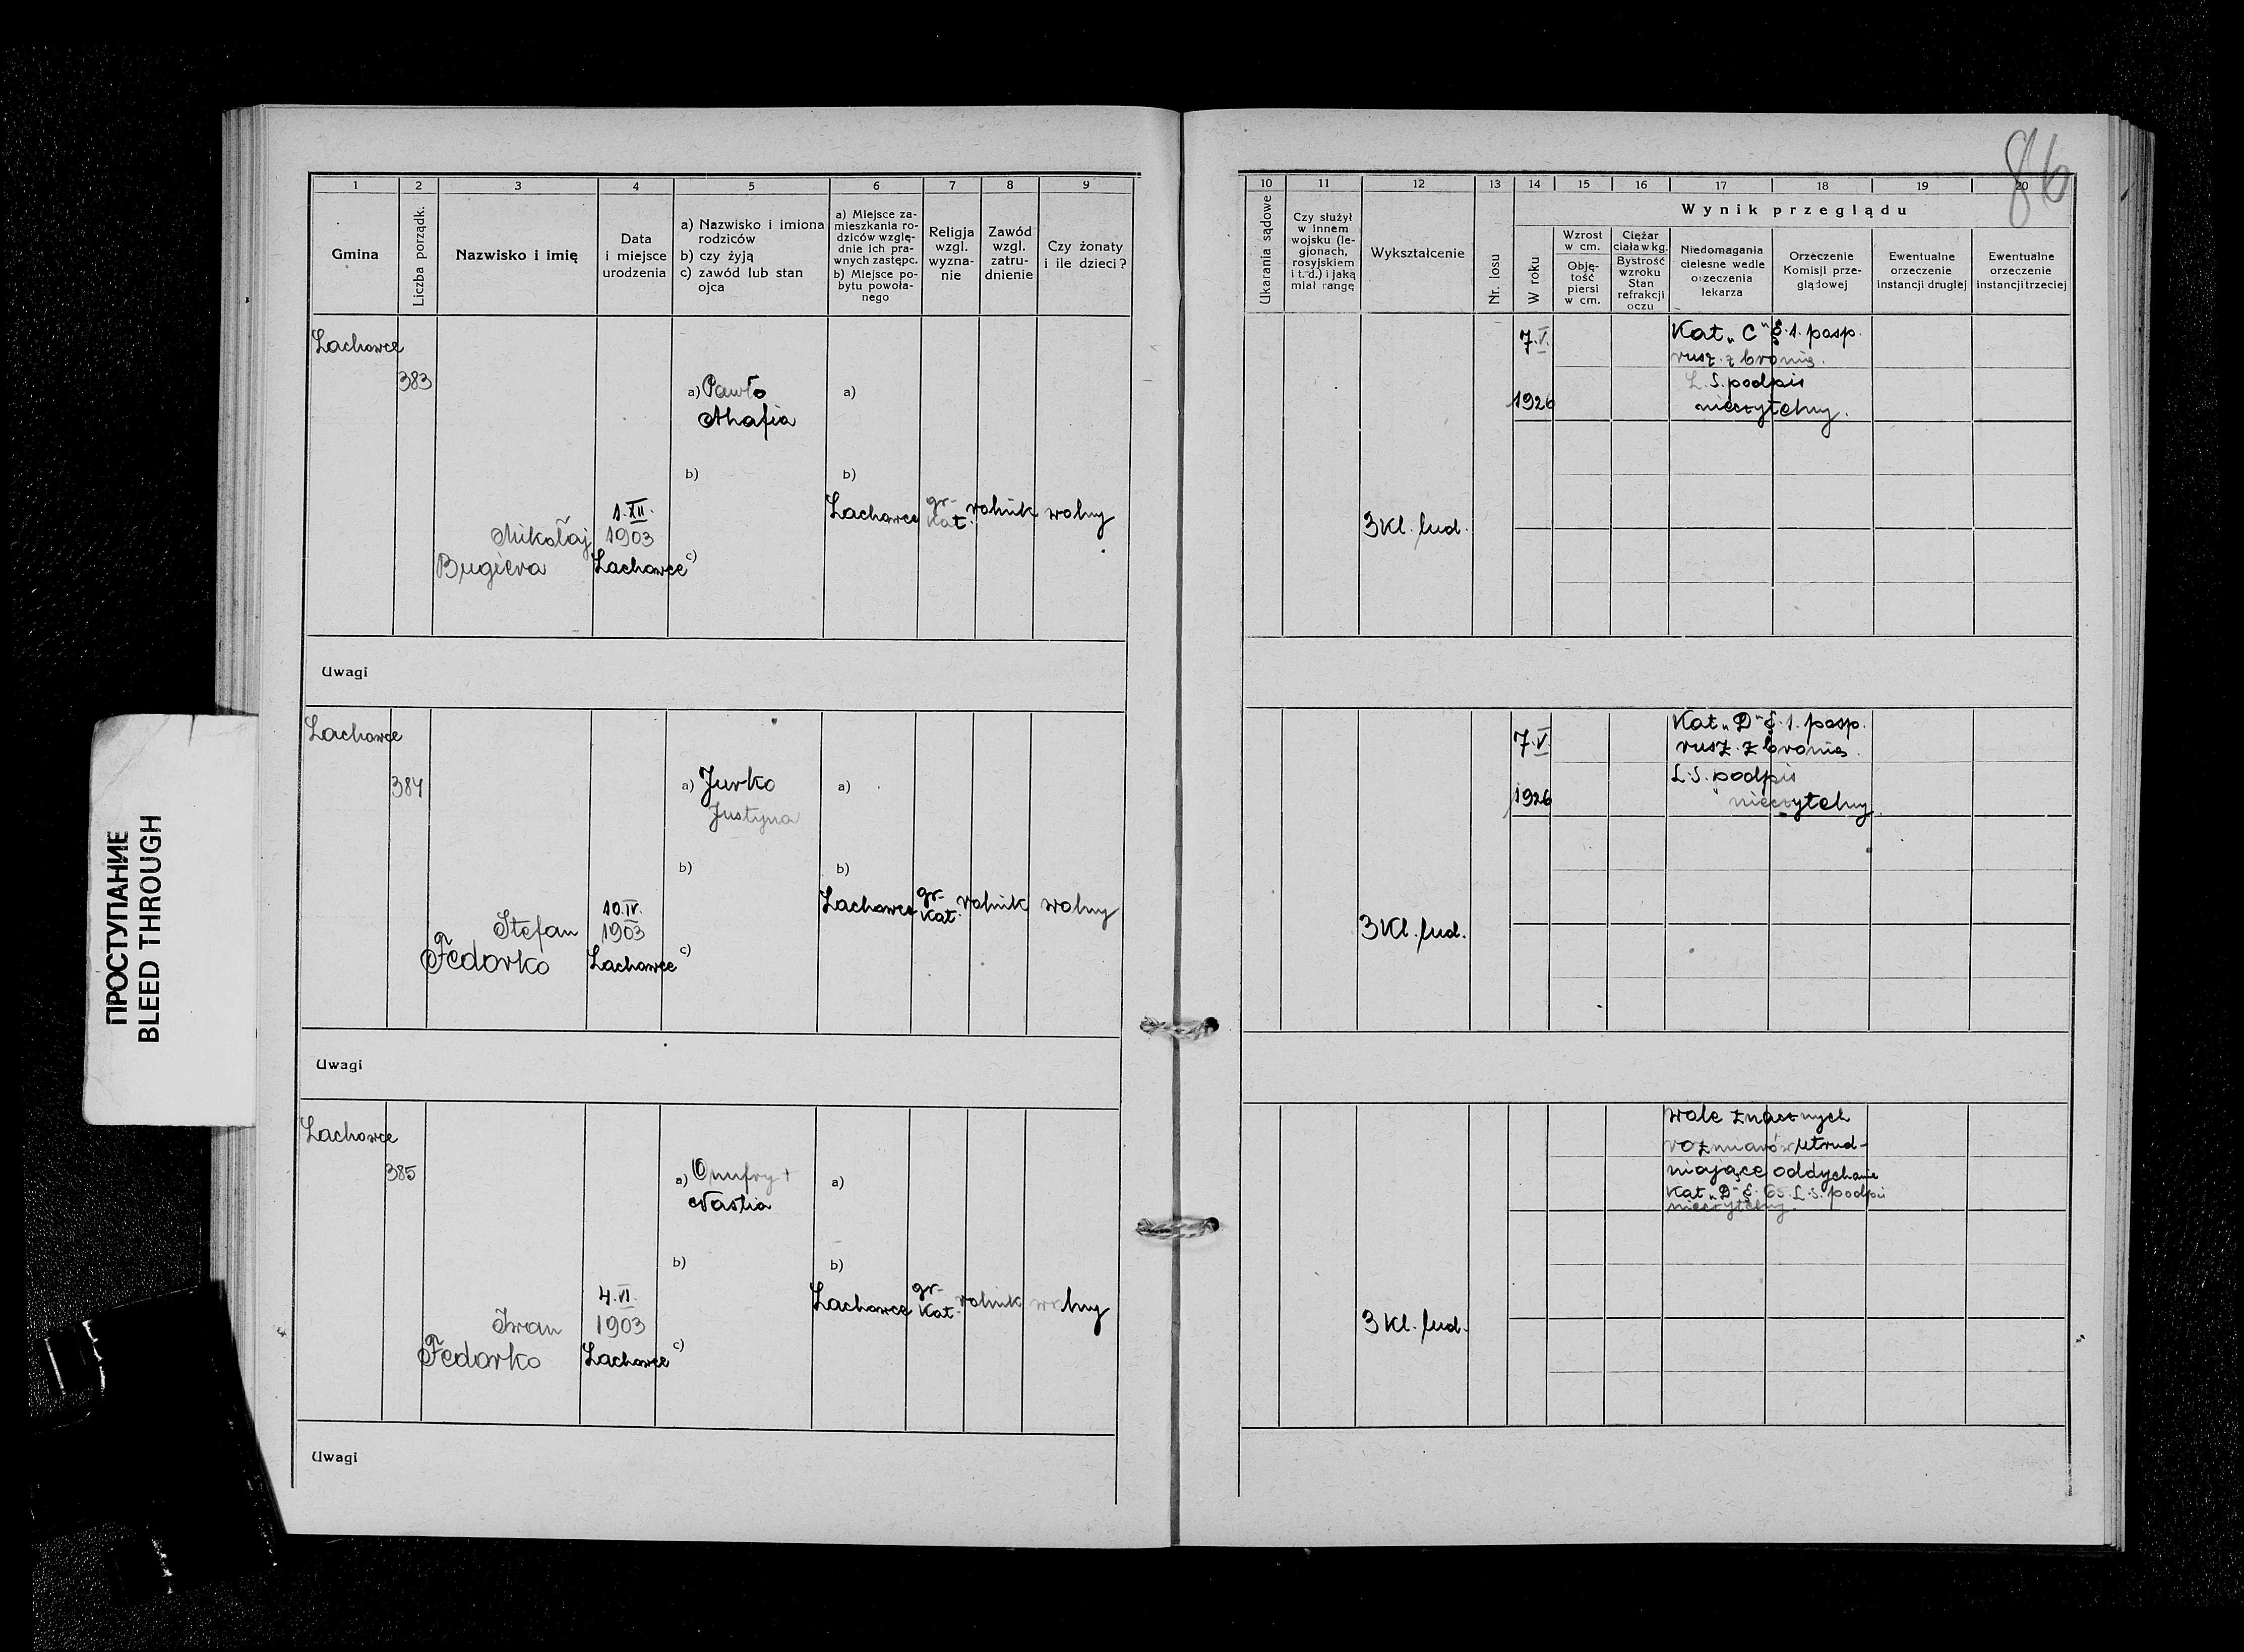 86
1
2
3
4
5
6
7
8
9
Gmina
Liczba porządk.
Nazwisko i imię
Data
i miejsce
urodzenia
a) Nazwisko i imiona
rodziców
b) czy żyją
c) zawód lub stan
ojca
a) Miejsce za-
mieszkania ro-
dziców wzglę-
dnie ich pra-
wnych zastępc.
b) Miejsce po-
bytu powoła-
nego
Religja
wzgl.
wyzna-
nie
Zawód
wzgl.
zatru-
dnienie
Czy żonaty
i ile dzieci?
10
11
12
13
14
15
16
17
18
19
20
Ukarania sądowe
Czy służył
w innem
wojsku (le-
gjonach,
rosyjskiem
i t. d.) i jaką
miał rangę
Wykształcenie
Nr. losu
Wynik przeglądu
W roku
Wzrost
w cm.
Obję-
tość
piersi
w cm.
Ciężar
ciała w kg.
Bystrość
wzroku
Stan
refrakcji
oczu
Niedomagania
cielesne wedle
orzeczenia
lekarza
Orzeczenie
Komisji prze-
glądowej
Ewentualne
orzeczenie
instancji drugiej
Ewentualne
orzeczenie
instancji trzeciej
Lachowce
383
Mikołaj
Bugiera
1.XII.
1903
Lachowce
a) Pawło
Ahafia
b)
c)
a)
b)
Lachowce
gr-
kat.
rolnik
wolny
3 Kl. lud.
7.V.
1926
Kat "C" §.1. posp.
rusz. z bronią.
L.S. podpis
nieczytelny.
Uwagi
Lachowce
384
Stefan
Fedorko
10.IV.
1903
Lachowce
a) Jurko
Justyna
b)
c)
a)
b)
Lachowce
gr-
kat.
rolnik
wolny
3 Kl. lud.
7.V.
1926
Kat "D" §.1. posp.
rusz. z bronią.
L.S. podpis
nieczytelny.
Uwagi
Lachowce
385
Iwan
Fedorko
4.VI.
1903
Lachowce
a) Onufry +
Nastia
b)
c)
a)
b)
Lachowce
gr-
kat.
rolnik
wolny
3 Kl. lud.
wole znacznych
rozmiarów utrud-
niające oddychanie
Kat "D" §. 65. L.S. podpis
nieczytelny.
Uwagi
ПРОСТУПАНИЕ
BLEED THROUGH